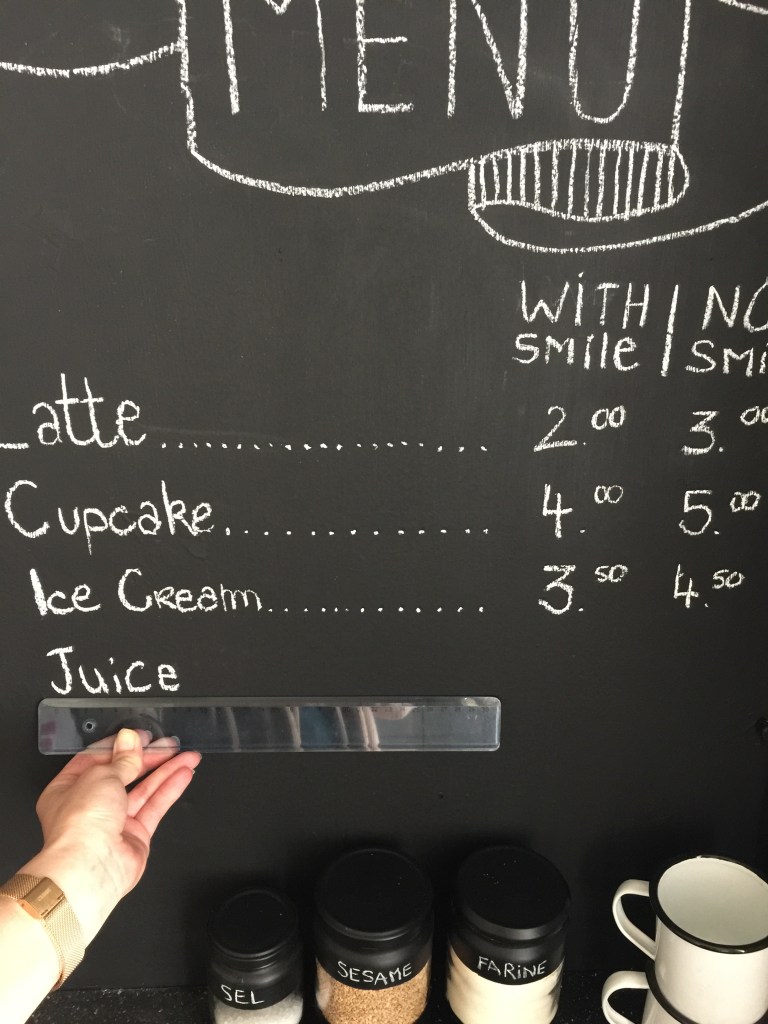 MENU
WITH | NO
SMIlE | SMI
Latte.................... 2.00 3.00
Cupcake............... 4.00 5.00
Ice Cream............... 3.50 4.50
Juice
SEL
SESAME
FARiNE